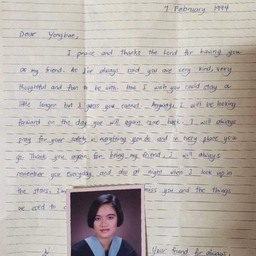 7 February 1994
Dear Yongbum,
I praise and thanks the Lord for having you
as my friend. As I've always said you are very kind, very
thoughtful and fun to be with. How I wish you could stay a
little longer but I guess you cannot. Anyway, I will be looking
forward on the day you will again come back. I will always
pray for your safety in everything you do and in every place you
go. Thank you again for being my friend. I will always
remember you everyday, and also at night when I look up in
the stars. I'm miss you and the things
we used to
Your friend for always,